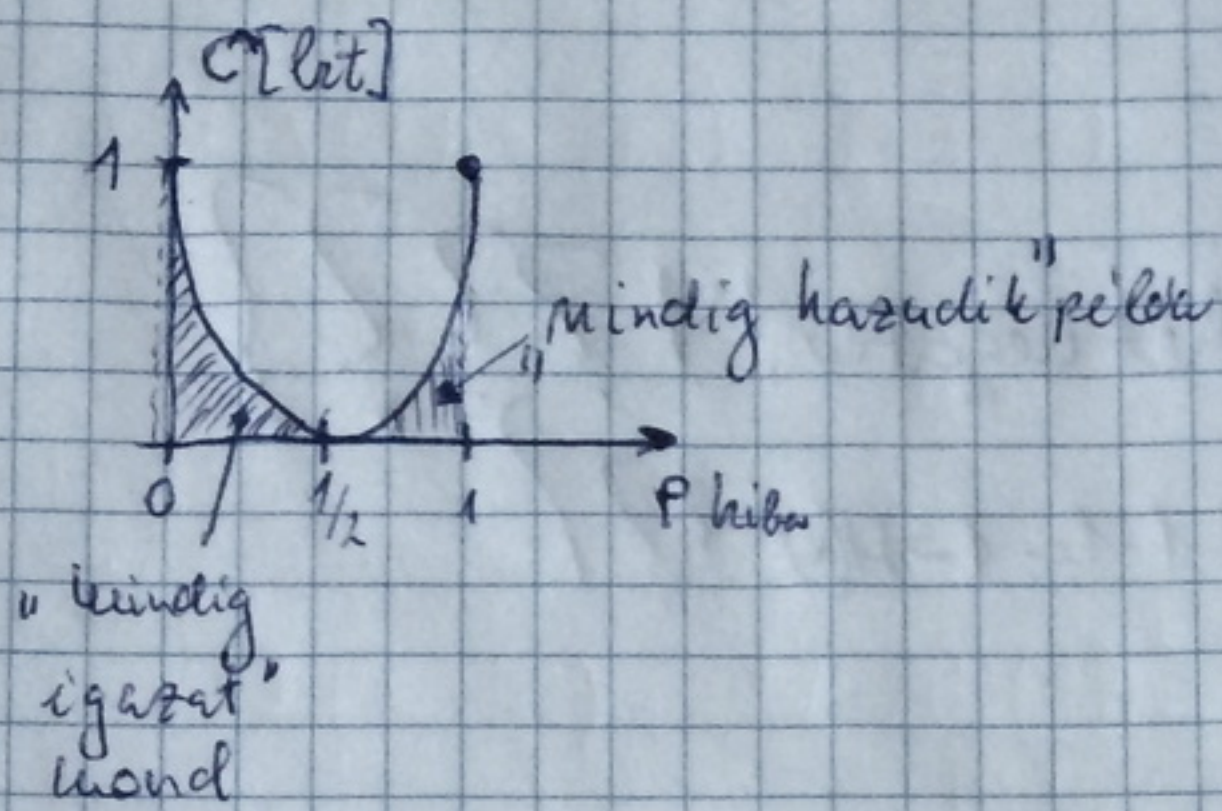 C [bit]
1
„mindig hazudik" példa
0 1/2 1 P hiba
„mindig
igazat"
mond